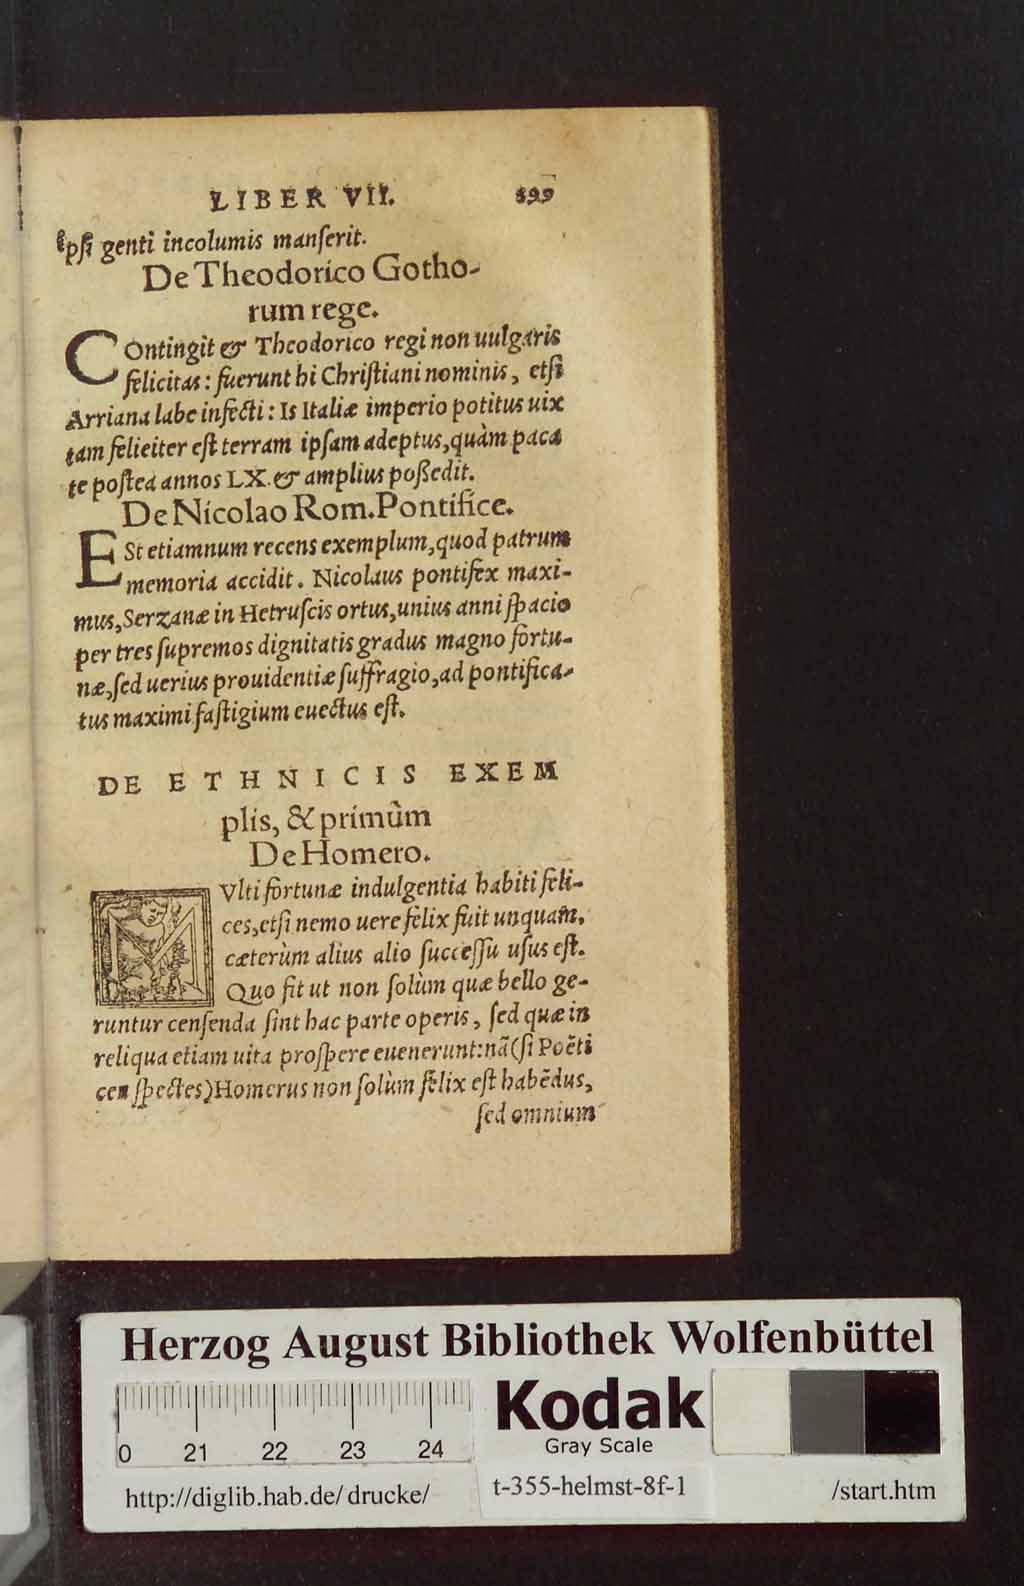 LIBER VII. 899
ipsi genti incolumis manſerit.
De Theodorico Gotho-
rum rege.
COntingit & Theodorico regi non uulgaris
felicitas: fuerunt hi Chriſtiani nominis, etſi
Arriana labe infecti: Is Italiæ imperio potitus uix
tam felieiter eſt terram ipſam adeptus, quàm paca
te poſtea annos LX. & amplius poßedit.
De Nicolao Rom. Pontifice.
ESt etiamnum recens exemplum, quod patrum
memoria accidit. Nicolaus pontifex maxi-
mus, Serzanæ in Hetruſcis ortus, unius anni ſpacio
per tres ſupremos dignitatis gradus magno fortu-
næ, ſed uerius prouidentiæ ſuffragio, ad pontifica-
tus maximi faſtigium euectus eſt.
DE ETHNICIS EXEM
plis, & primùm
De Homero.
MVlti fortunæ indulgentia habiti feli-
ces, etſi nemo uere felix fuit unquam.
cæterùm alius alio ſucceſſu uſus eſt.
Quo fit ut non ſolùm quæ bello ge-
runtur cenſenda ſint hac parte operis, ſed quæ in
reliqua etiam uita proſpere euenerunt: nã (ſi Poëti
cen ſpectes) Homerus non ſolùm felix eſt habẽdus,
ſed omnium
Herzog August Bibliothek Wolfenbüttel
0 21 22 23 24
Kodak
Gray Scale
http://diglib.hab.de/drucke/ t-355-helmst-8f-1 /start.htm